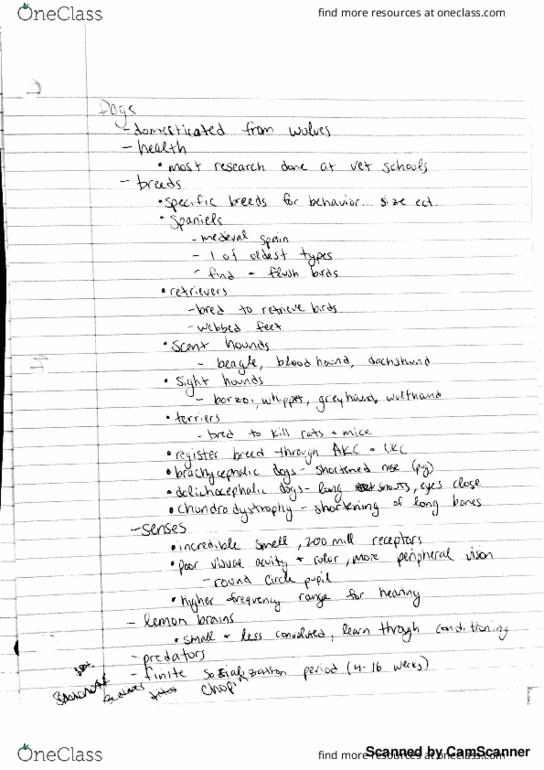 OneClass
find more resources at oneclass.com
Dogs
- domesticated from wolves
- health
• most research done at vet schools
- breeds
• specific breeds for behavior... size ect.
• Spaniels
- medeval spain
- 1 of oldest types
- find + flush birds
• retrievers
- bred to retrieve birds
- webbed feet
• Scent hounds
- beagle, bloodhound, dachshund
• Sight hounds
- borzoi, whippet, greyhound, wolfhound
• terriers
- bred to kill rats + mice
• register breed through AKC + UKC
• brachycephalic dogs - shortened nose (pug)
• dolichocephalic dogs - long snouts, eyes close
• chondrodystrophy - shortening of long bones
- senses
• incredible smell, 200 mill receptors
• poor visual acuity + color, more peripheral vision
- round circle pupil
• higher frequency range for hearing
- lemon brains
• small + less convoluted, learn through conditioning
- predators
- finite socialization period (4-16 weeks)
OneClass
find more resources at oneclass.com
Scanned by CamScanner